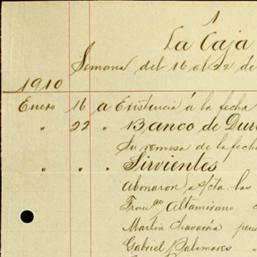 1
La Caja
Semana del 16 al 22 de
1910
Enero 16 a Existencia á la fecha
" 22 " Banco de Dur
Su remesa de la fecha
" " " Sirvientes
Abonaron a/cta. las
Franco Altamirano
Martin Chavarria
Gabriel Palomares